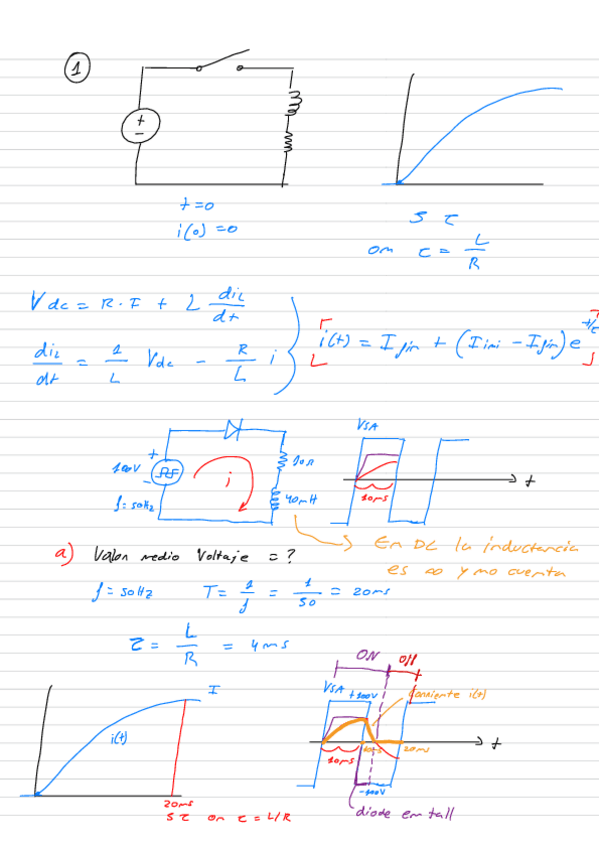 1
+
−
t=0
i(0) =0
5 τ
on τ = L/R
Vdc = R·I + L diL/dt
diL/dt = 1/L Vdc − R/L i
i(t) = Ifin + (Iini − Ifin) e^-t/τ
VSA
+
100V
−
f=50Hz
i
10Ω
40mH
10ms
t
En DC la inductancia
es ∞ y no cuenta
a) Valor medio Voltaje = ?
f=50Hz T= 1/f = 1/50 = 20ms
τ = L/R = 4ms
ON
OFF
I
i(t)
20ms
5τ on τ = L/R
VSA
+100V
Corriente i(t)
10ms
20ms
t
-100V
diode en tall